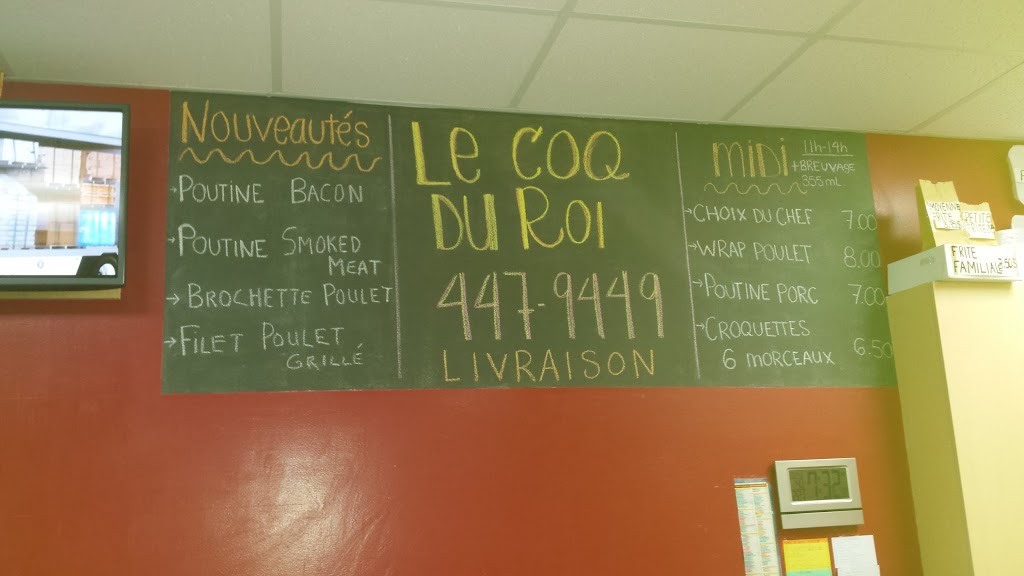 Nouveautés
→Poutine Bacon
→Poutine Smoked
Meat
→Brochette Poulet
→Filet Poulet
Grillé
Le Coq
du Roi
447-9449
LIVRAISON
MIDI
11h-14h
+BREUVAGE
355mL
→CHOIX DU CHEF 7.00
→WRAP POULET 8.00
→POUTINE PORC 7.00
→CROQUETTES
6 MORCEAUX 6.50
MOYENNE
FRITE
PETITE
FRITE
FAMILIALE
7:32